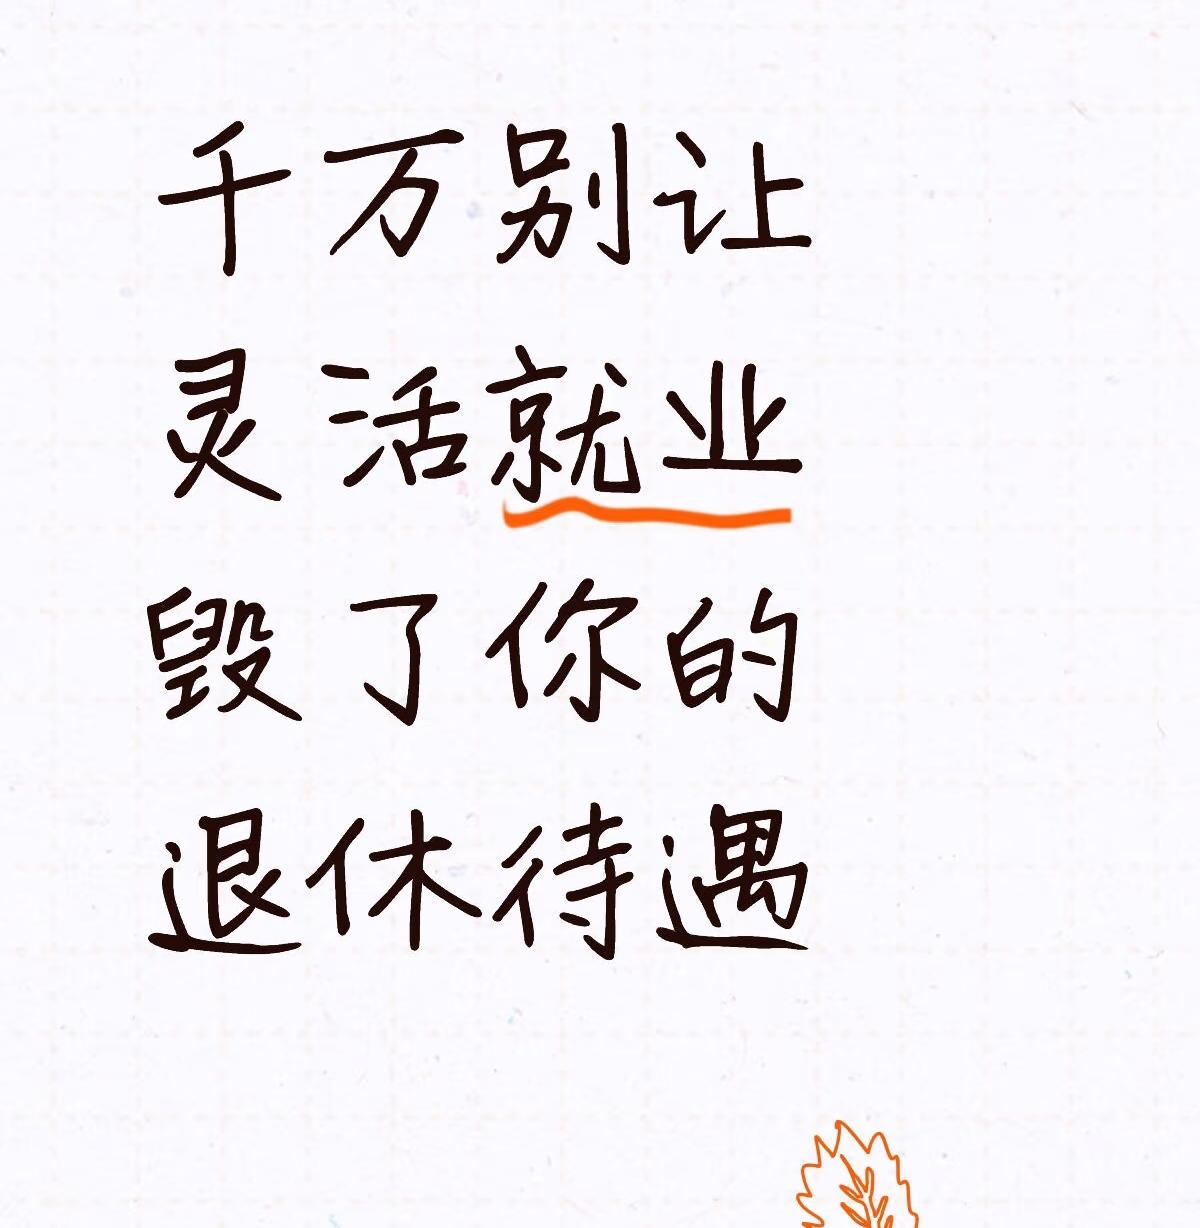 千万别让
灵活就业
毁了你的
退休待遇